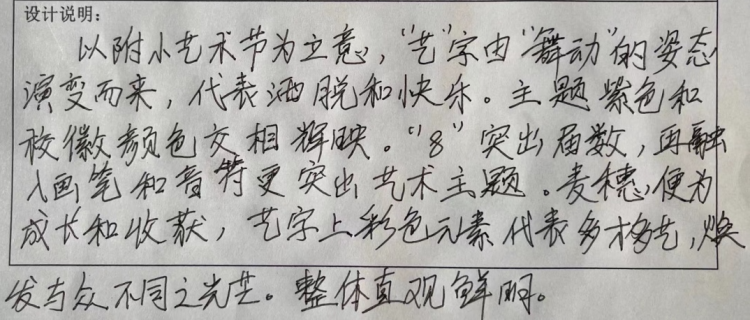 设计说明：
以附小艺术节为立意，“艺”字由“舞动”的姿态
演变而来，代表洒脱和快乐。主题紫色和
校徽颜色交相辉映。“8”突出届数，再融
入画笔和音符更突出艺术主题。麦穗，便为
成长和收获，艺字上彩色元素代表多才多艺，焕
发与众不同之光芒。整体直观鲜明。